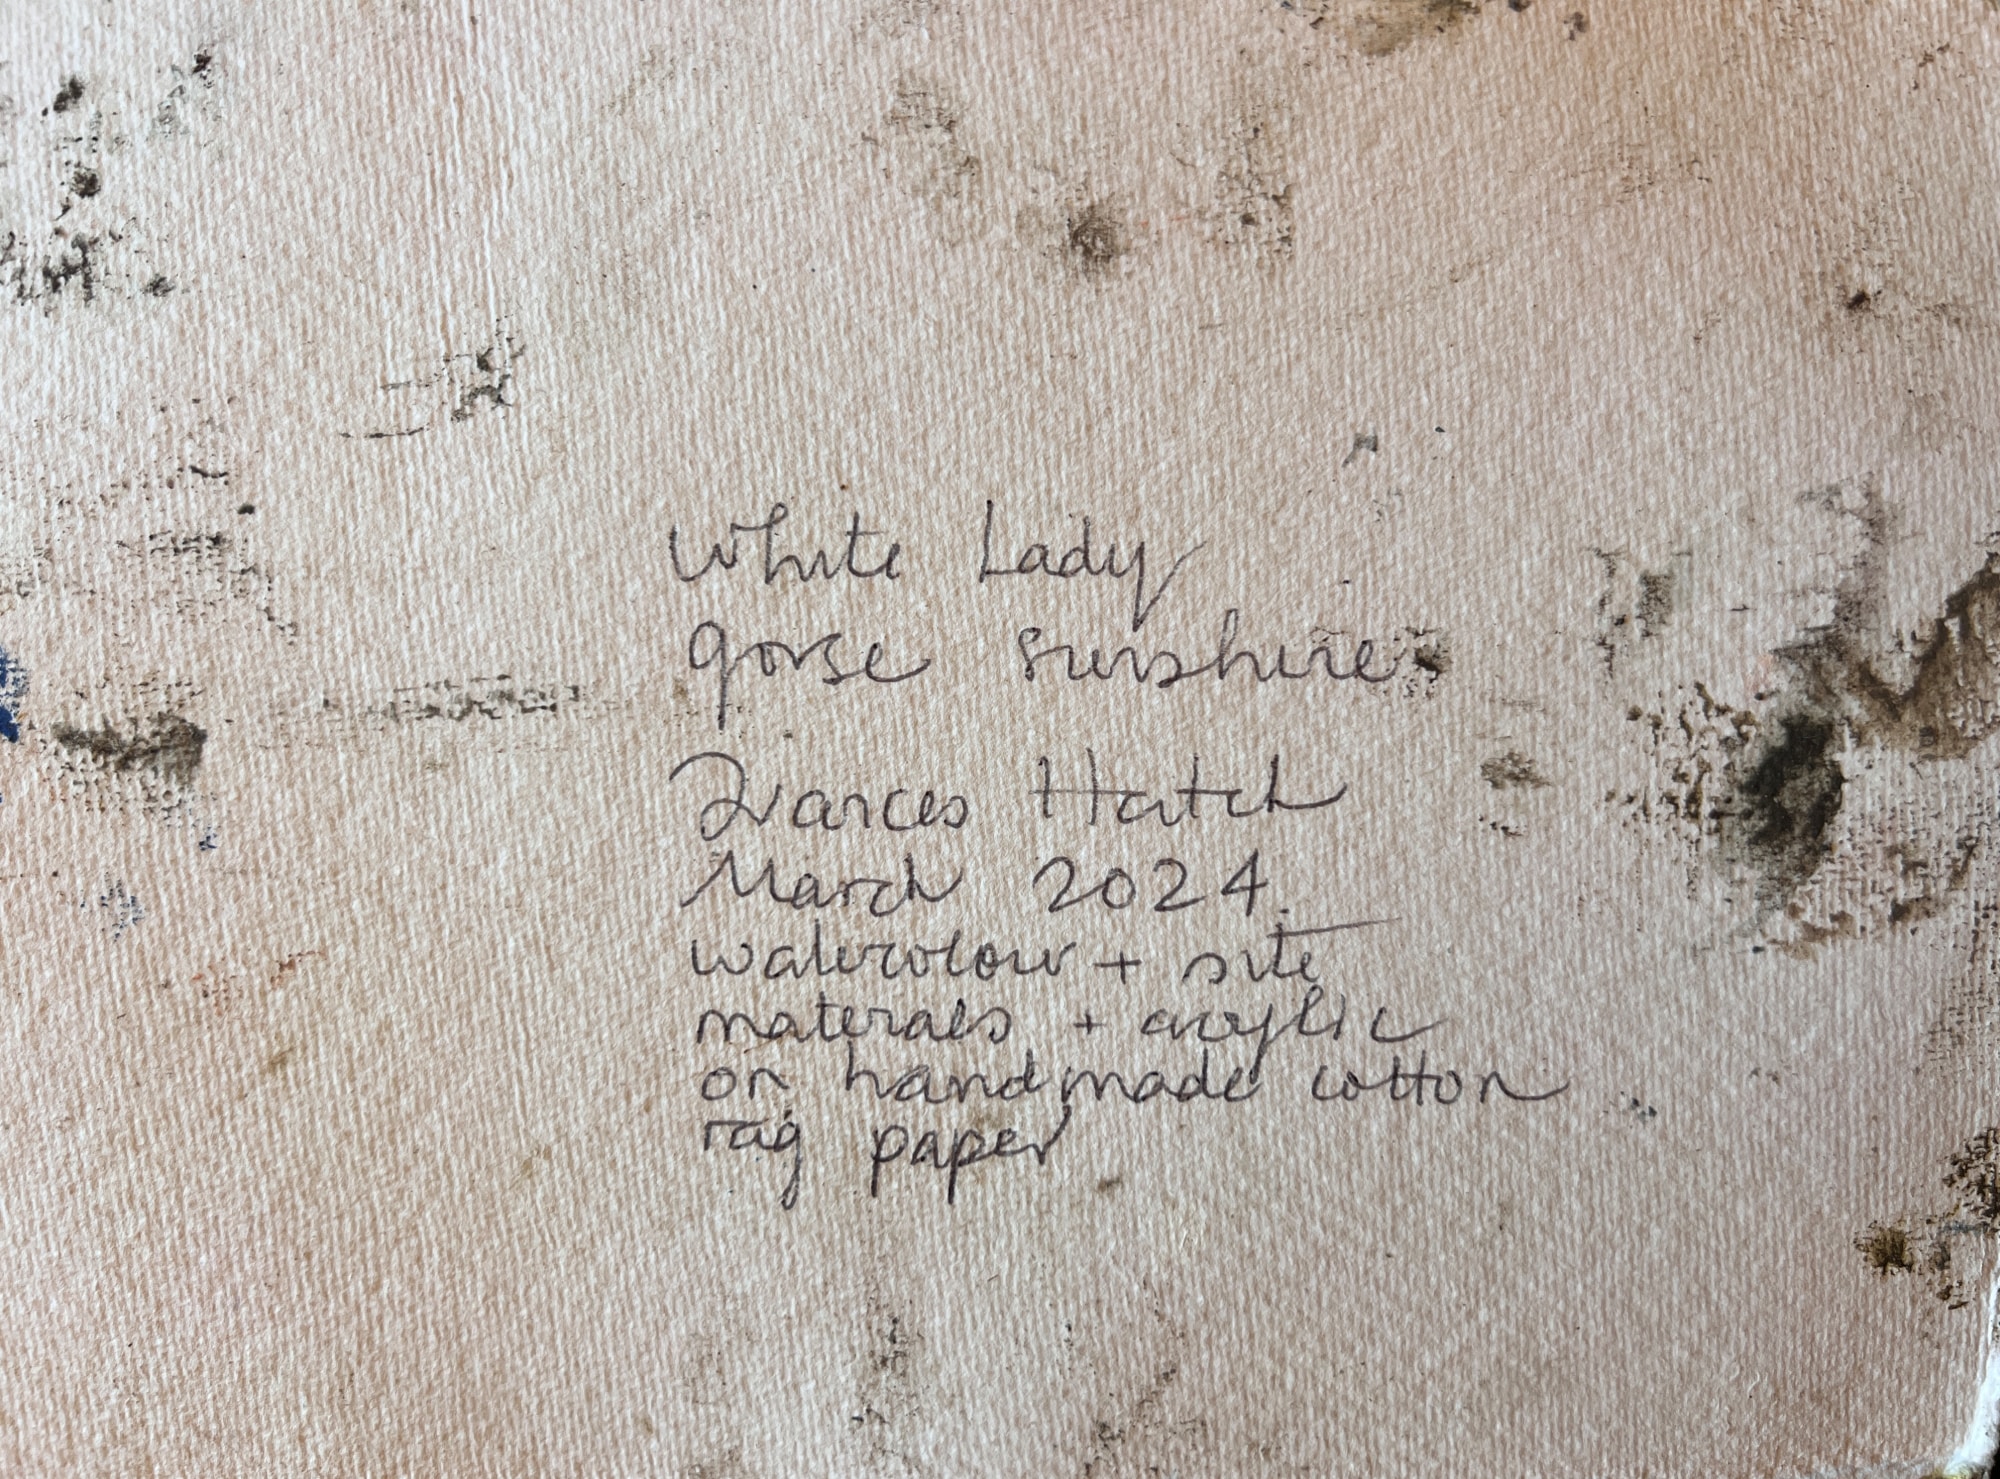 White Lady
gorse sunshine
Frances Hatch
March 2024.
watercolour + site
materials + acrylic
on handmade cotton
rag paper